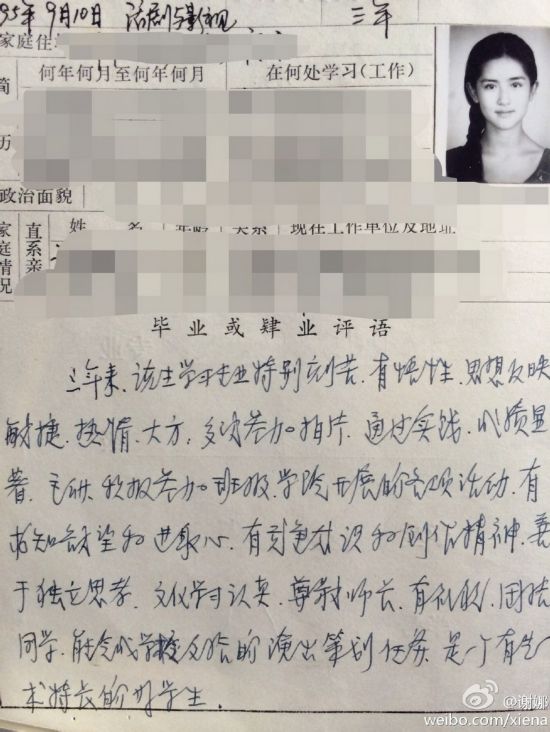 95年9月10日 话剧与影视 三年
家庭住
简 何年何月至何年何月 在何处学习(工作)
历
政治面貌
家庭情况 直系亲 姓名 年龄 关系 现在工作单位及地址
毕业或肄业评语
三年来、该生学习专业特别刻苦、有悟性、思想反映
敏捷、热情、大方、多次参加拍片、通过实践、成质量
著、主动、积极参加班级、学院开展的各项活动、有
求知欲望和进取心、有刻意识和创作精神、善
于独立思考、文化学习认真、尊敬师长、有礼貌、团结
同学、能完成学校交给的演出策划任务、是一个有艺
术特长的好学生.
@谢娜
weibo.com/xiena